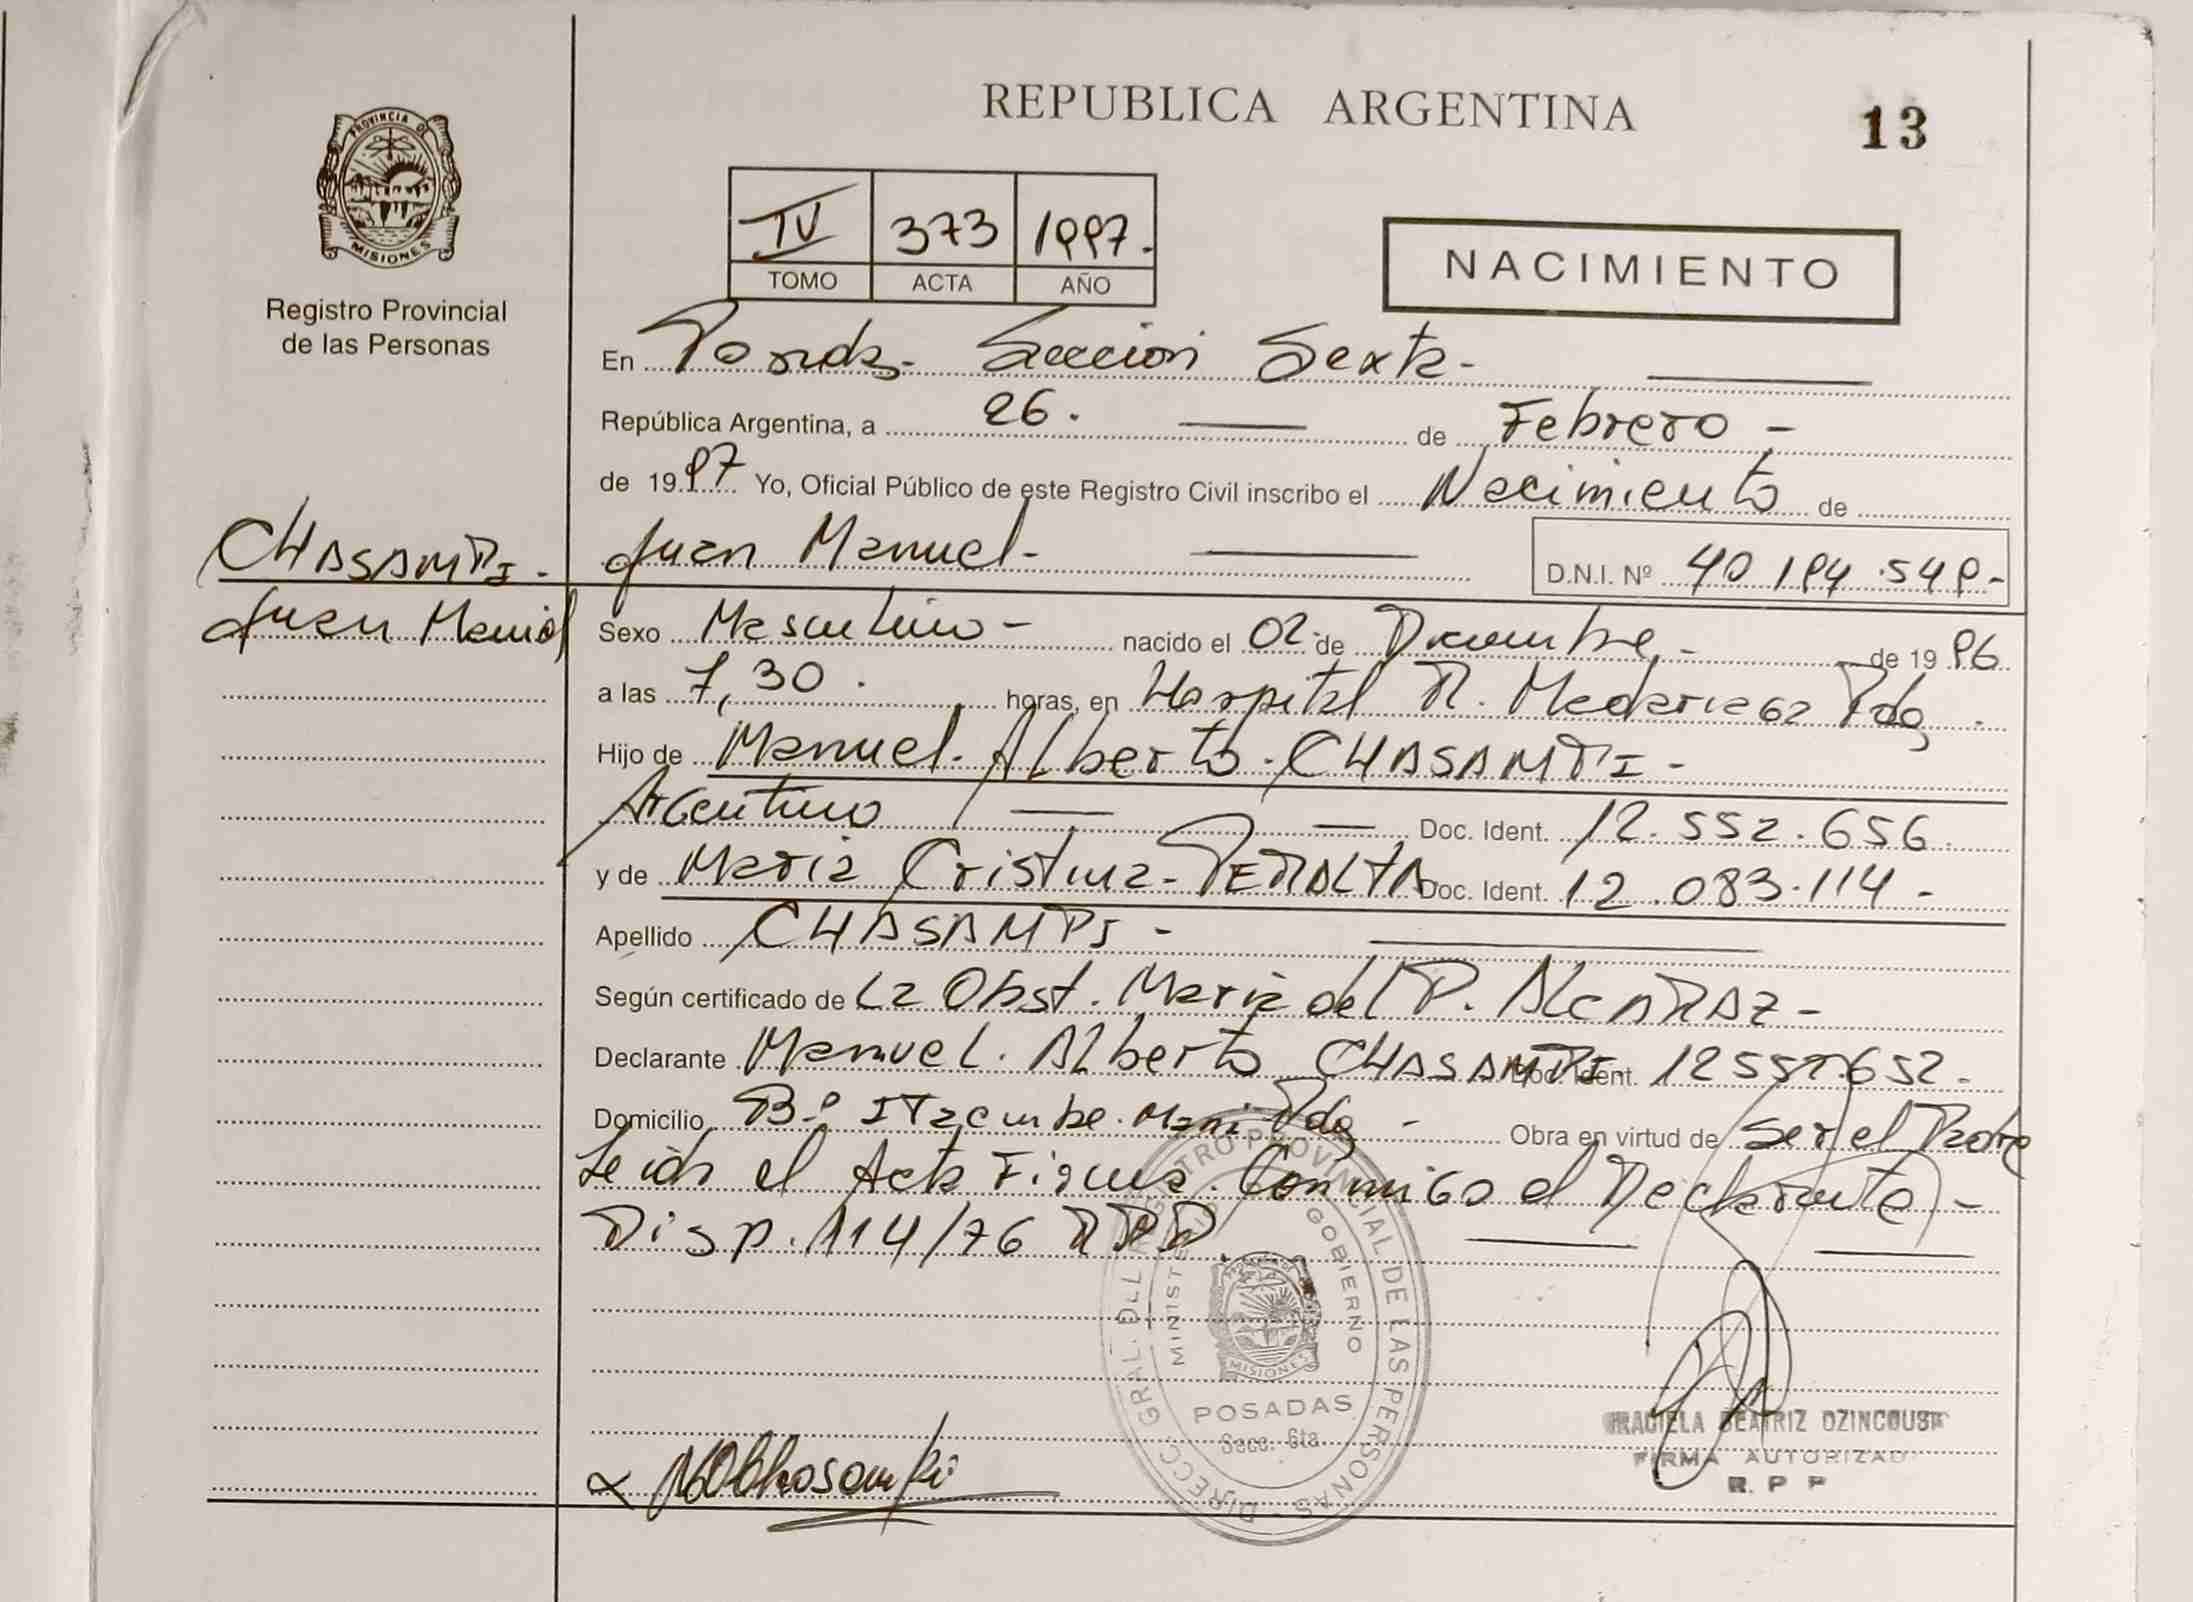 REPUBLICA ARGENTINA
13
PROVINCIA DE
MISIONES
Registro Provincial
de las Personas
IV 373 1997.
TOMO ACTA AÑO
NACIMIENTO
En Posadas- Seccion Sexta-
República Argentina, a 26. de Febrero -
de 1997 Yo, Oficial Público de este Registro Civil inscribo el Nacimiento de
CHASAMPI-
Juan Manuel-
D.N.I. Nº 40 194.549-
Juan Manuel
Sexo Masculino- nacido el 02 de Diciembre.- de 1996
a las 7,30. horas, en Hospital R. Madariaga Pdas.
Hijo de Manuel. Alberto. CHASAMPI-
Argentino Doc. Ident. 12.552.656
y de Maria Cristina-PERALTA Doc. Ident. 12.083.114-
Apellido CHASAMPI-
Según certificado de La Obst. Maria del P. ALCARAZ-
Declarante Manuel. Alberto CHASAMPI Doc. Ident. 12552.652.
Domicilio Bº Itaembe. Mani Pdas - Obra en virtud de ser el Padre
Leida el Acta Firma Conmigo el Declarante-
Disp. 114/76 RPP.
DIRECC. GRAL. DEL REGISTRO PROVINCIAL DE LAS PERSONAS
MINISTERIO GOBIERNO
MISIONES
POSADAS
Secc. 6ta.
GRACIELA BEATRIZ
FIRMA AUTORIZADA
R. P P